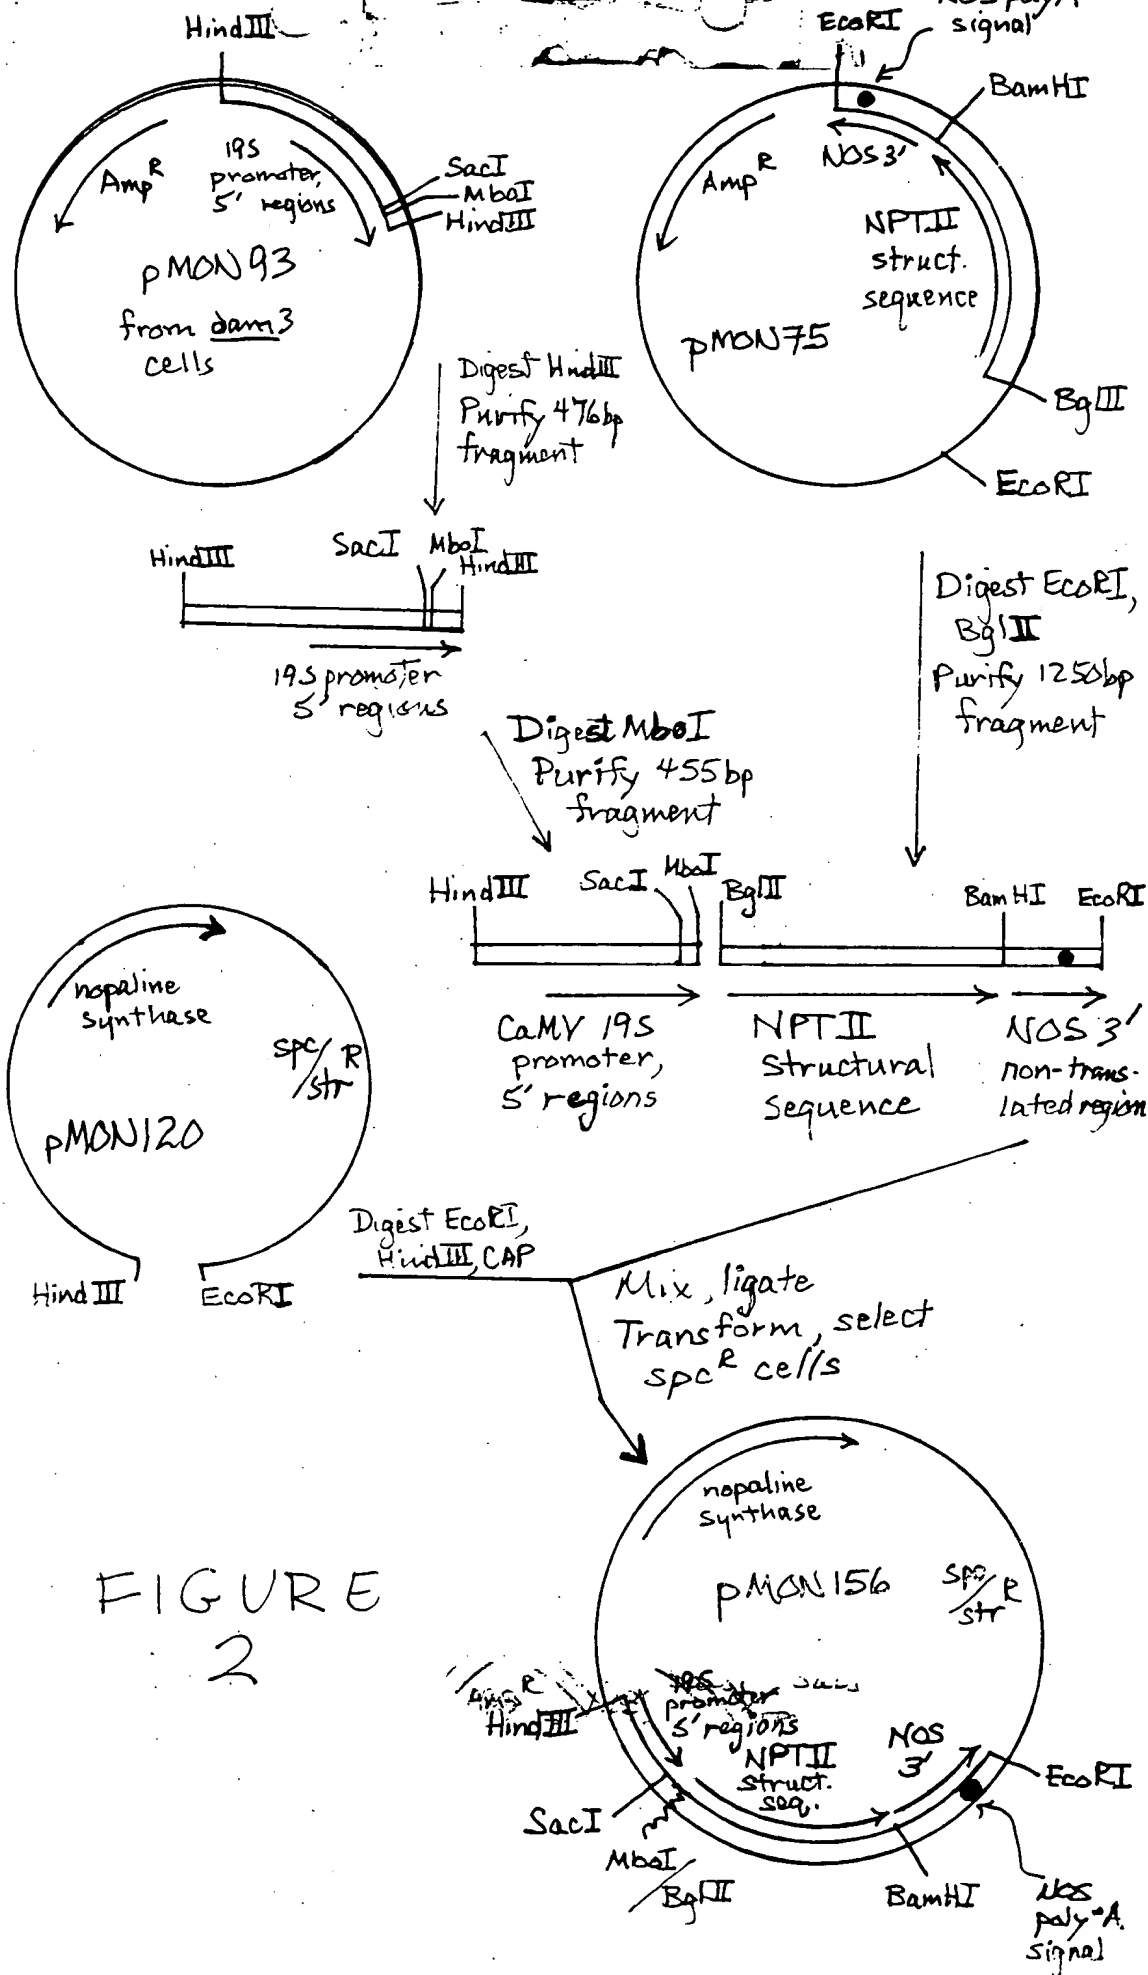 HindIII
Amp R
19S
promoter,
5' regions
SacI
MboI
HindIII
pMON93
from dam3
cells
EcoRI
NOS poly A
signal
BamHI
Amp R
NOS 3'
NPTII
struct.
sequence
pMON75
BglII
EcoRI
Digest HindIII
Purify 476bp
fragment
HindIII
SacI
MboI
HindIII
19S promoter
5' regions
Digest EcoRI,
BglII
Purify 1250bp
fragment
Digest MboI
Purify 455bp
fragment
HindIII
SacI
MboI
BglII
BamHI
EcoRI
CaMV 19S
promoter,
5' regions
NPTII
Structural
Sequence
NOS 3'
non-trans-
lated region
nopaline
synthase
spc/str R
pMON120
HindIII
EcoRI
Digest EcoRI,
HindIII, CAP
Mix, ligate
Transform, select
spc R cells
nopaline
synthase
pMON156
spc/str R
FIGURE
2
HindIII
19S
promoter
5' regions
NPTII
struct.
seq.
NOS
3'
EcoRI
SacI
MboI
/BglII
BamHI
NOS
poly-A
signal